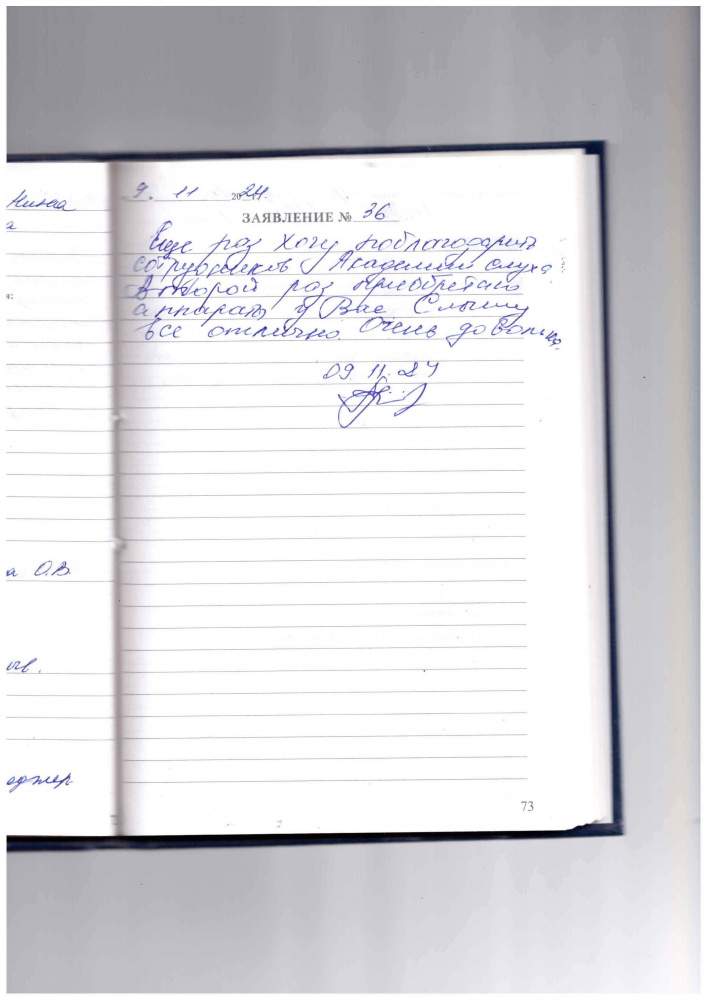 Нина
а
а:
а О.В.
ыв.
еджер
9. 11 2024 г.
ЗАЯВЛЕНИЕ № 36
Еще раз хочу поблагодарить
сотрудников Академии слуха
Второй раз приобретаю
аппараты у Вас Слышу
все отлично. Очень довольна.
09. 11. 24
73